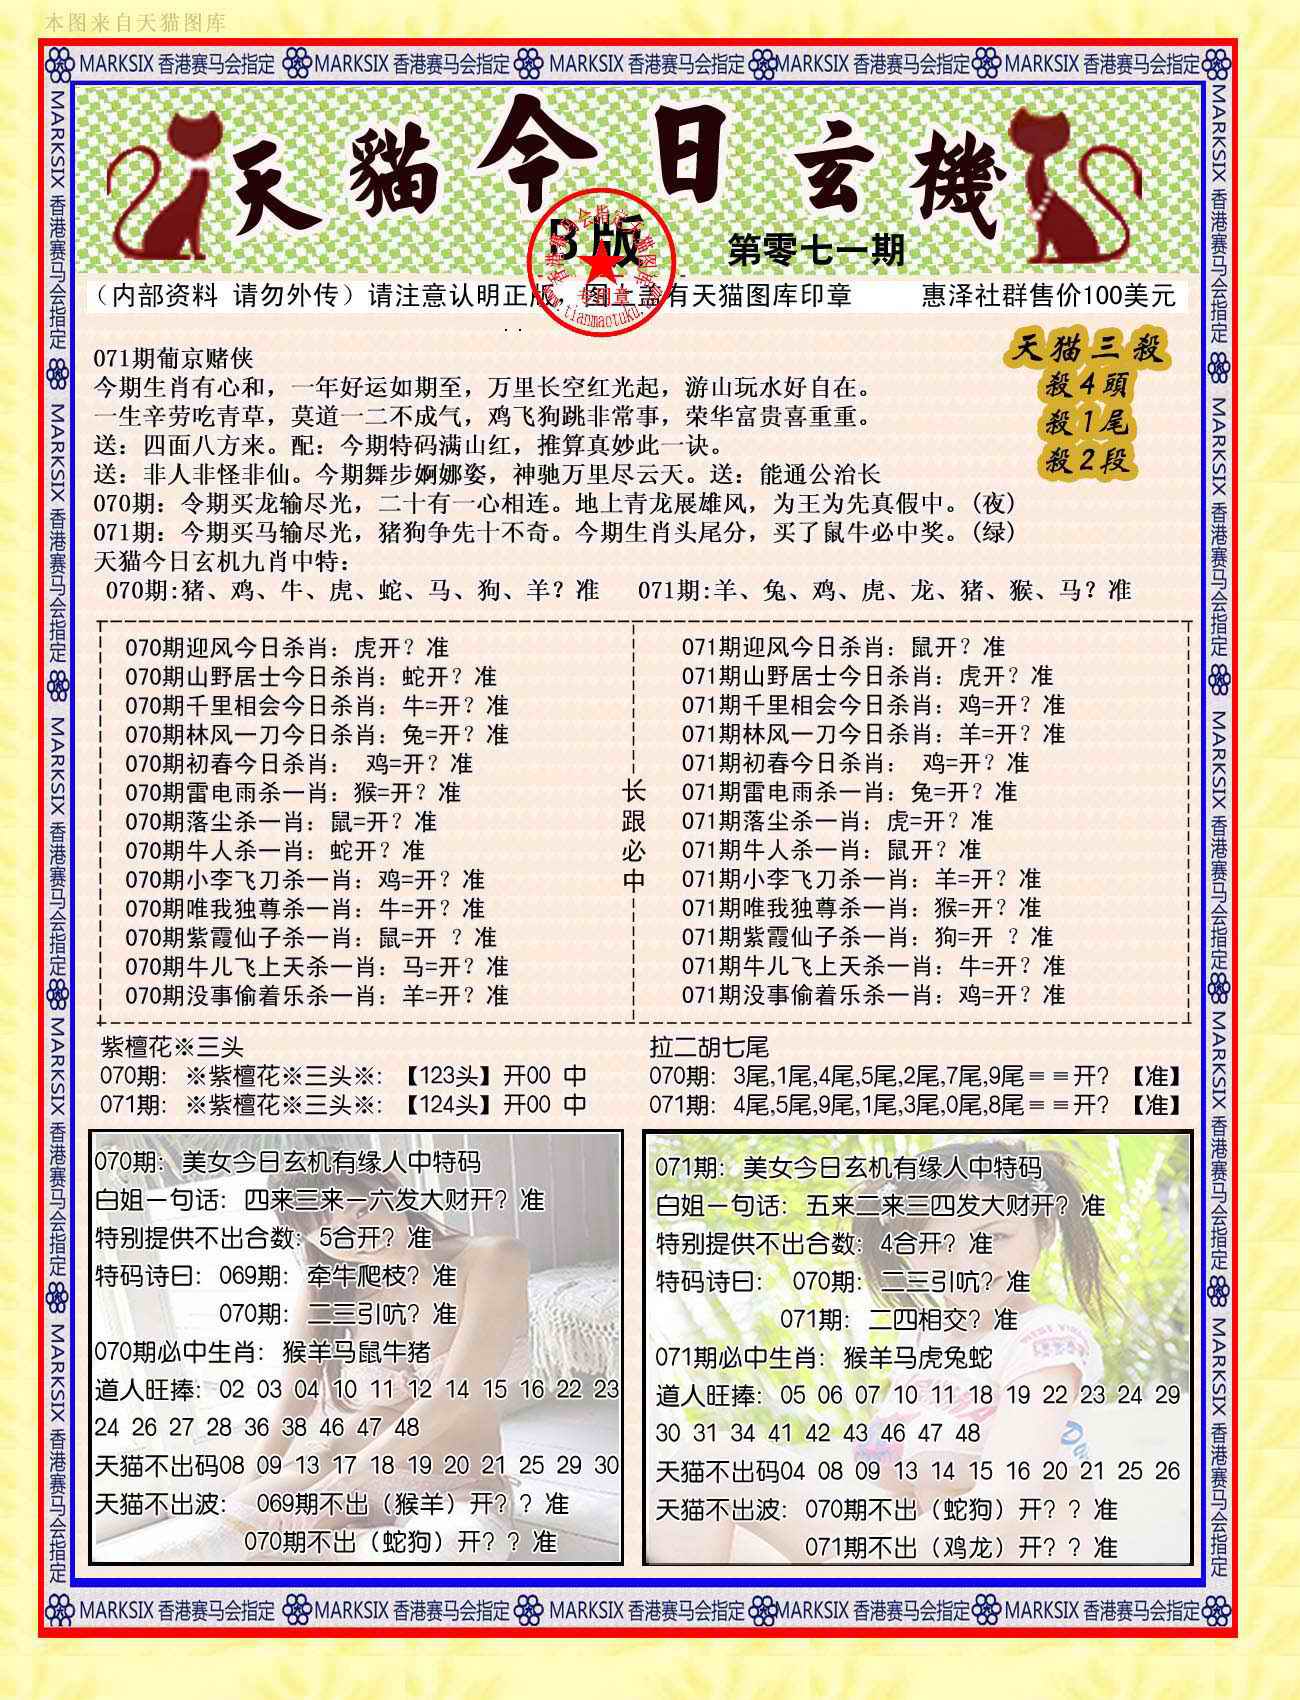 本图来自天猫图库
MARKSIX 香港赛马会指定 MARKSIX 香港赛马会指定 MARKSIX 香港赛马会指定 MARKSIX 香港赛马会指定 MARKSIX 香港赛马会指定
MARKSIX 香港赛马会指定 MARKSIX 香港赛马会指定 MARKSIX 香港赛马会指定 MARKSIX 香港赛马会指定 MARKSIX 香港赛马会指定
MARKSIX 香港赛马会指定 MARKSIX 香港赛马会指定 MARKSIX 香港赛马会指定 MARKSIX 香港赛马会指定 MARKSIX 香港赛马会指定
天貓今日玄機
B版
第零七一期
香港赛马会指定天猫图库
专用章
www.tianmaotuku.com
（内部资料 请勿外传）请注意认明正版，图上盖有天猫图库印章 惠泽社群售价100美元
天猫三殺
殺4頭
殺1尾
殺2段
071期葡京赌侠
今期生肖有心和，一年好运如期至，万里长空红光起，游山玩水好自在。
一生辛劳吃青草，莫道一二不成气，鸡飞狗跳非常事，荣华富贵喜重重。
送：四面八方来。配：今期特码满山红，推算真妙此一诀。
送：非人非怪非仙。今期舞步婀娜姿，神驰万里尽云天。送：能通公治长
070期：令期买龙输尽光，二十有一心相连。地上青龙展雄风，为王为先真假中。(夜)
071期：今期买马输尽光，猪狗争先十不奇。今期生肖头尾分，买了鼠牛必中奖。(绿)
天猫今日玄机九肖中特：
070期:猪、鸡、牛、虎、蛇、马、狗、羊？准 071期:羊、兔、鸡、虎、龙、猪、猴、马？准
070期迎风今日杀肖：虎开？准
070期山野居士今日杀肖：蛇开？准
070期千里相会今日杀肖：牛=开？准
070期林风一刀今日杀肖：兔=开？准
070期初春今日杀肖： 鸡=开？准
070期雷电雨杀一肖：猴=开？准
070期落尘杀一肖：鼠=开？准
070期牛人杀一肖：蛇开？准
070期小李飞刀杀一肖：鸡=开？准
070期唯我独尊杀一肖：牛=开？准
070期紫霞仙子杀一肖：鼠=开 ？准
070期牛儿飞上天杀一肖：马=开？准
070期没事偷着乐杀一肖：羊=开？准
长跟必中
071期迎风今日杀肖：鼠开？准
071期山野居士今日杀肖：虎开？准
071期千里相会今日杀肖：鸡=开？准
071期林风一刀今日杀肖：羊=开？准
071期初春今日杀肖： 鸡=开？准
071期雷电雨杀一肖：兔=开？准
071期落尘杀一肖：虎=开？准
071期牛人杀一肖：鼠开？准
071期小李飞刀杀一肖：羊=开？准
071期唯我独尊杀一肖：猴=开？准
071期紫霞仙子杀一肖：狗=开 ？准
071期牛儿飞上天杀一肖：牛=开？准
071期没事偷着乐杀一肖：鸡=开？准
紫檀花※三头
070期：※紫檀花※三头※:【123头】开00 中
071期：※紫檀花※三头※:【124头】开00 中
拉二胡七尾
070期：3尾,1尾,4尾,5尾,2尾,7尾,9尾≡≡开？【准】
071期：4尾,5尾,9尾,1尾,3尾,0尾,8尾≡≡开？【准】
070期：美女今日玄机有缘人中特码
白姐一句话：四来三来一六发大财开？准
特别提供不出合数：5合开？准
特码诗曰：069期：牵牛爬枝？准
070期：二三引吭？准
070期必中生肖：猴羊马鼠牛猪
道人旺捧：02 03 04 10 11 12 14 15 16 22 23
24 26 27 28 36 38 46 47 48
天猫不出码08 09 13 17 18 19 20 21 25 29 30
天猫不出波： 069期不出（猴羊）开？？准
070期不出（蛇狗）开？？准
071期：美女今日玄机有缘人中特码
白姐一句话：五来二来三四发大财开？准
特别提供不出合数：4合开？准
特码诗曰： 070期：二三引吭？准
071期：二四相交？准
071期必中生肖：猴羊马虎兔蛇
道人旺捧：05 06 07 10 11 18 19 22 23 24 29
30 31 34 41 42 43 46 47 48
天猫不出码04 08 09 13 14 15 16 20 21 25 26
天猫不出波：070期不出（蛇狗）开？？准
071期不出（鸡龙）开？？准
MARKSIX 香港赛马会指定 MARKSIX 香港赛马会指定 MARKSIX 香港赛马会指定 MARKSIX 香港赛马会指定 MARKSIX 香港赛马会指定